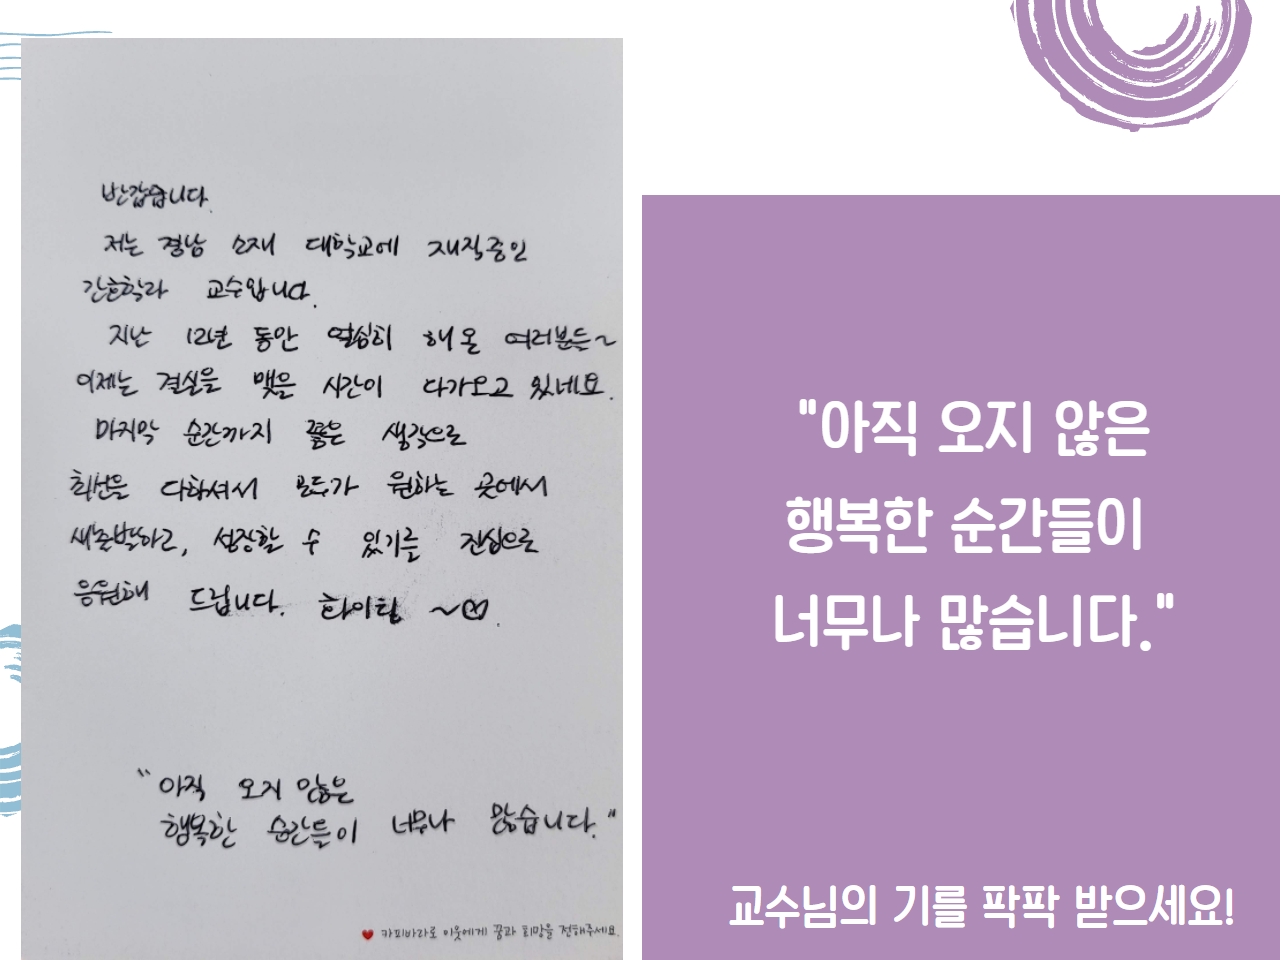 반갑습니다.
저는 경남 소재 대학교에 재직중인
간호학과 교수입니다.
지난 12년 동안 열심히 해 온 여러분들~
이제는 결실을 맺을 시간이 다가오고 있네요.
마지막 순간까지 좋은 생각으로
최선을 다하셔서 모두가 원하는 곳에서
새출발하고, 성장할 수 있기를 진심으로
응원해 드립니다. 화이팅 ~♡.
"아직 오지 않은
행복한 순간들이 너무나 많습니다."
♥ 카피바라로 이웃에게 꿈과 희망을 전해주세요.
"아직 오지 않은
행복한 순간들이
너무나 많습니다."
교수님의 기를 팍팍 받으세요!